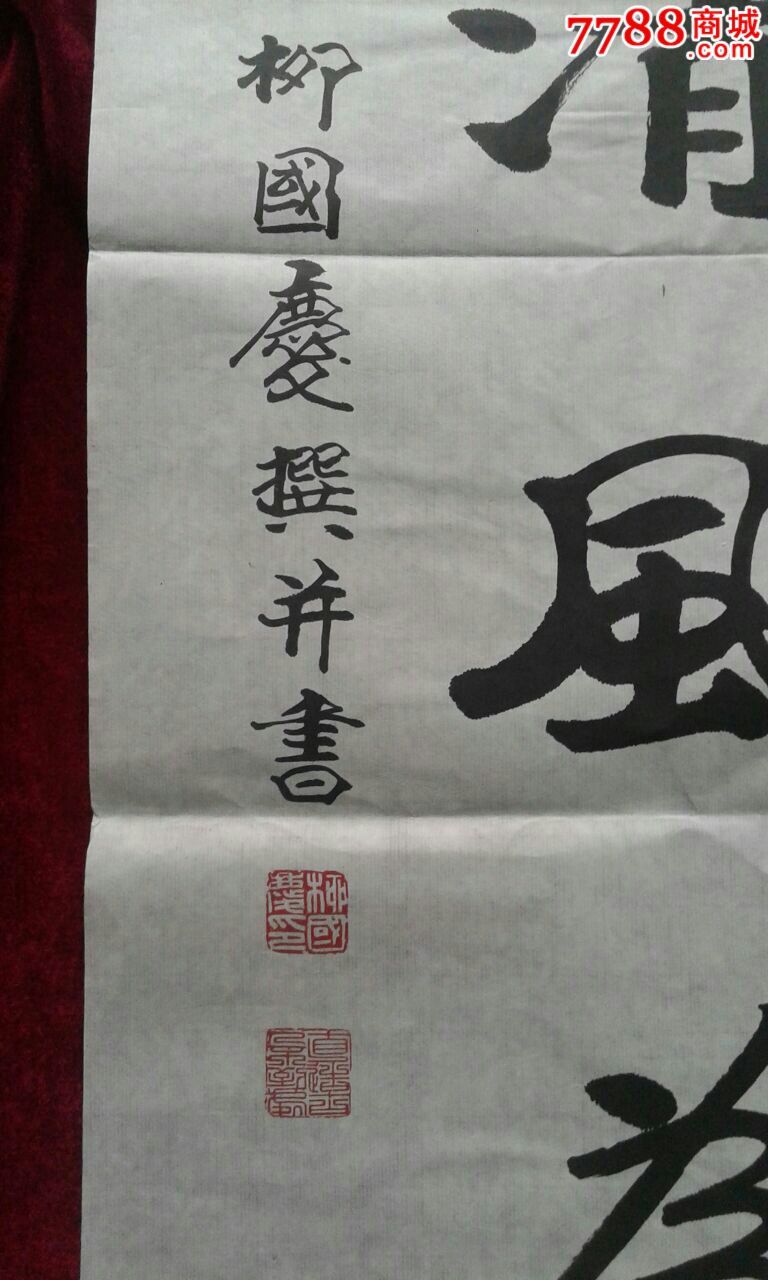 7788商城
.com
清風為
柳國慶撰并書
柳國慶印